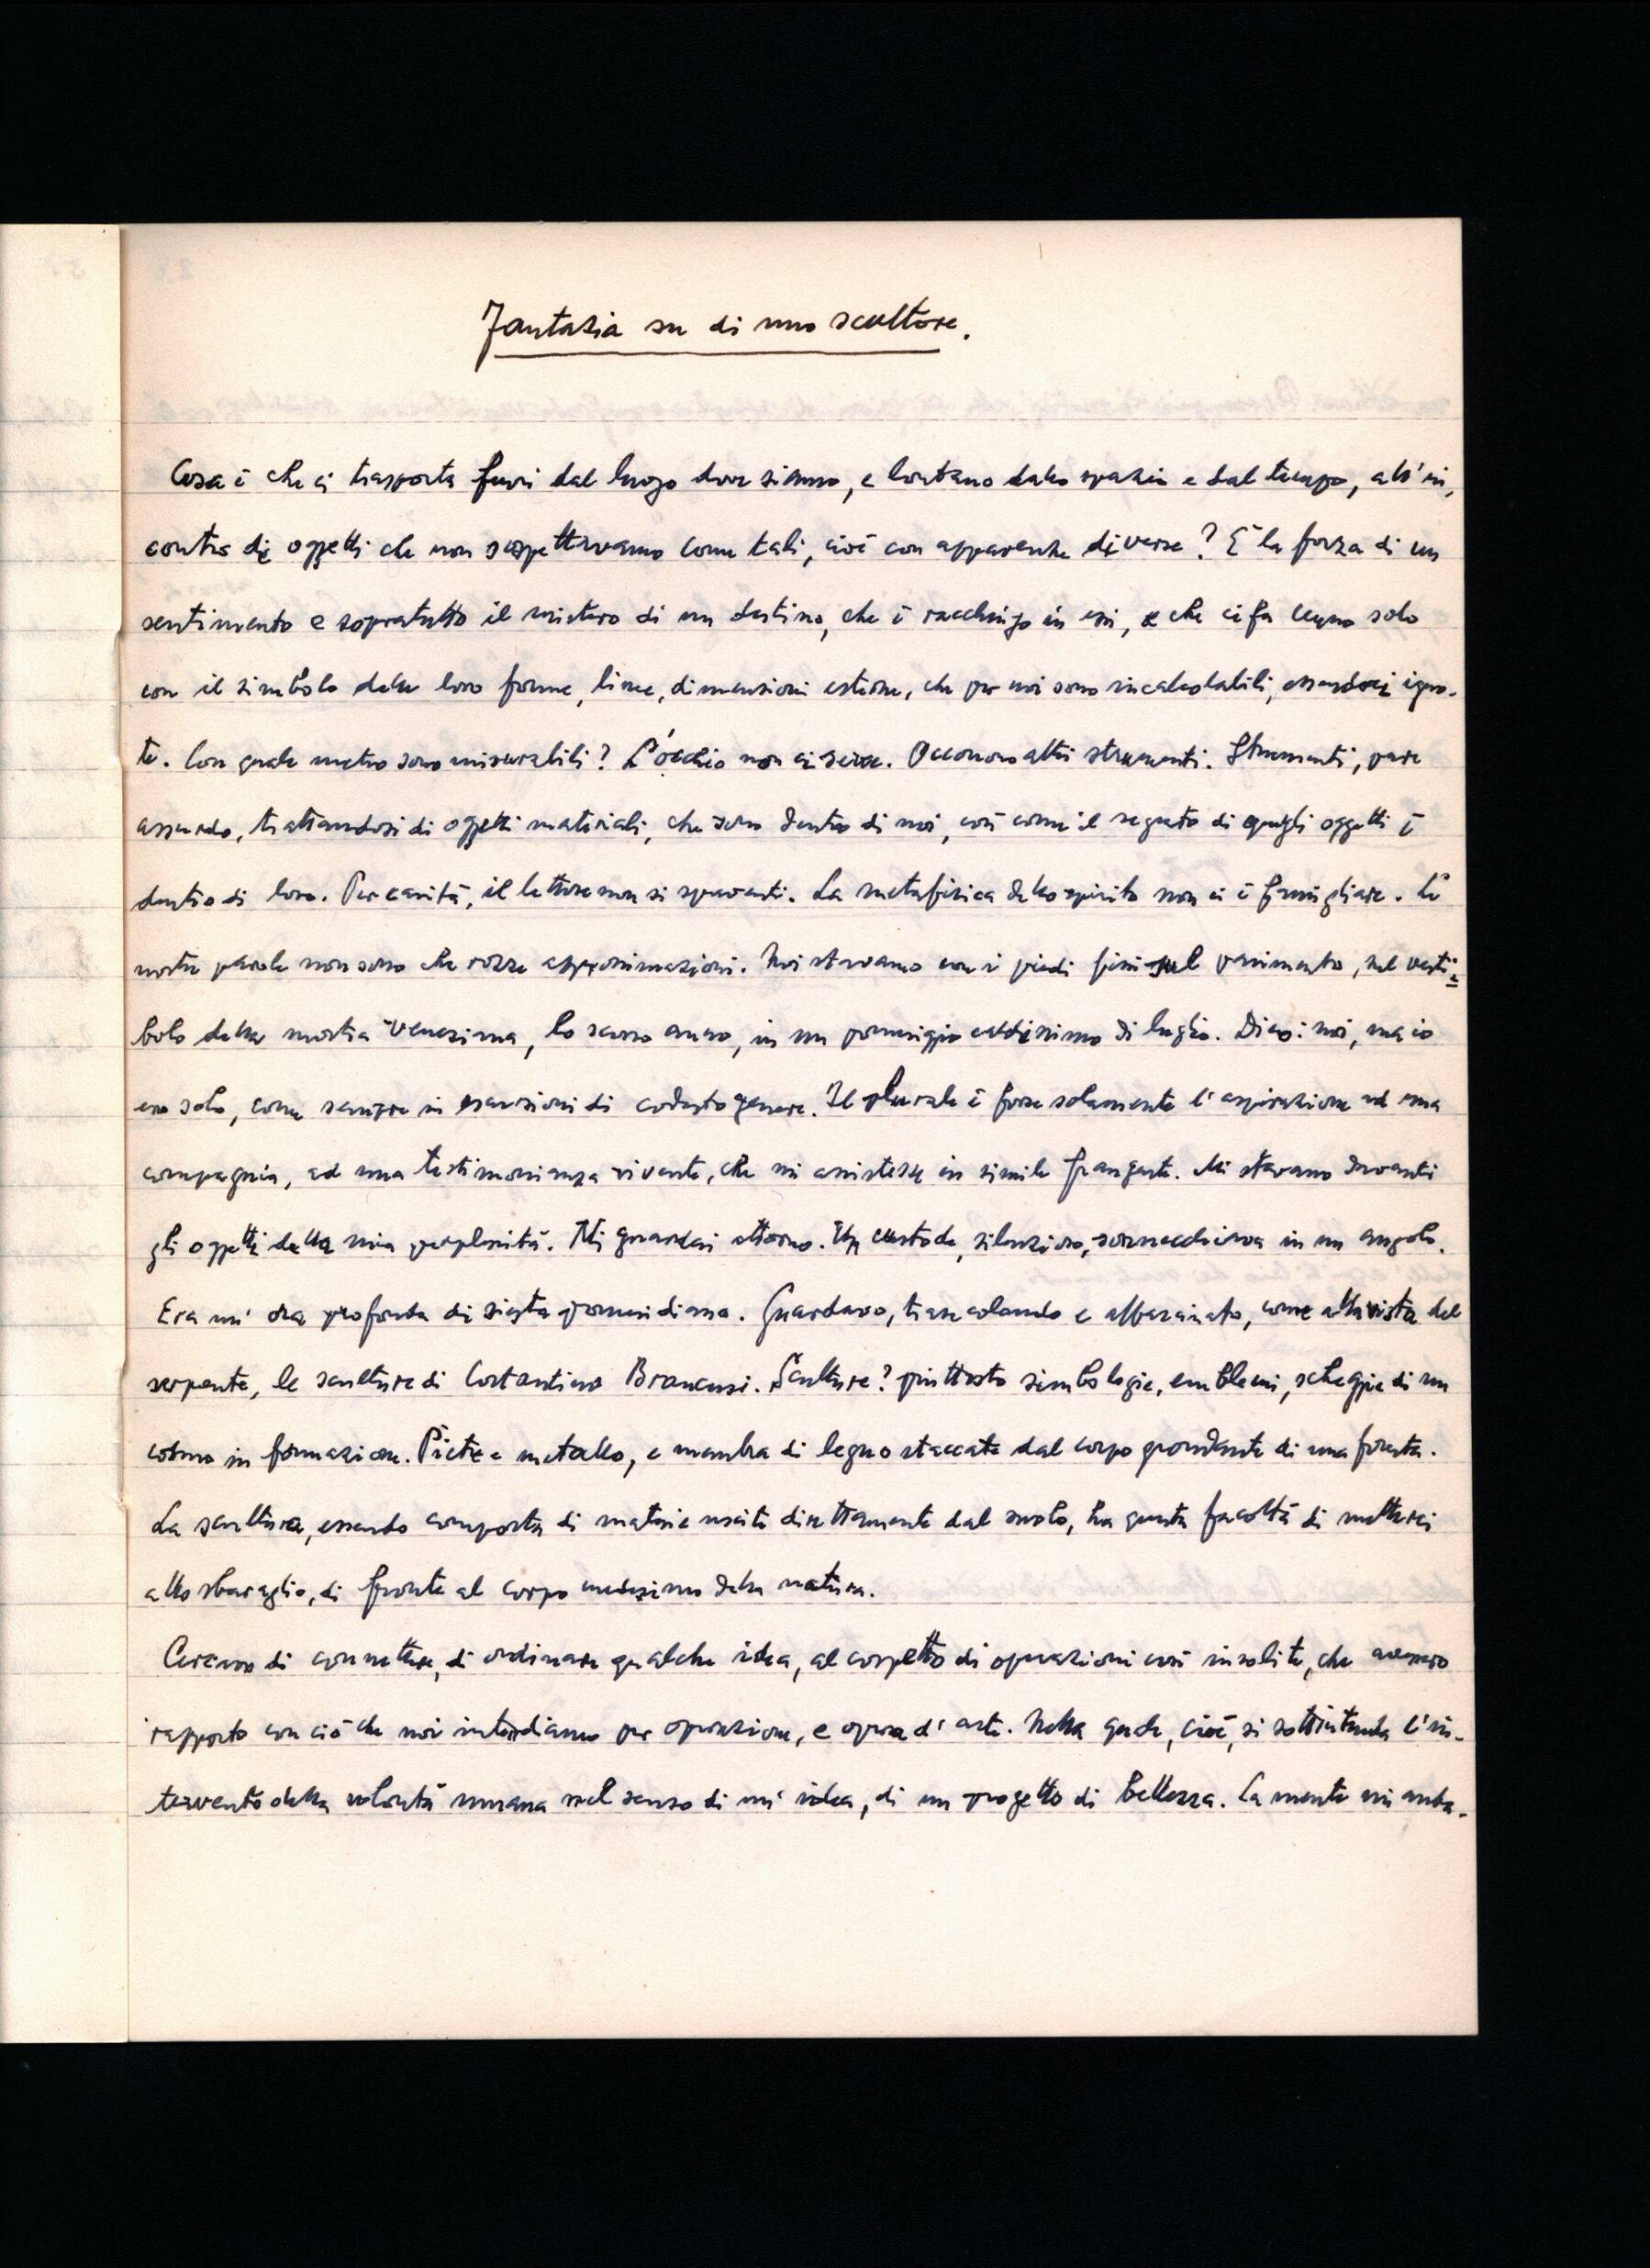 Fantasia su di uno scultore.
Cosa è che ci trasporta fuori dal luogo dove siamo, e lontano dallo spazio e dal tempo, all'in,
contro di oggetti che non sospettavamo come tali, cioè con apparenze diverse? È la forza di un
sentimento e sopratutto il mistero di un destino, che è racchiuso in essi, e che ci fa cenno solo
con il simbolo delle loro forme, linee, dimensioni esterne, che per noi sono incalcolabili, essendoci igno-
te. Con quale metro sono misurabili? L'occhio non ci serve. Occorrono altri strumenti. Strumenti, pare
assurdo, trattandosi di oggetti materiali, che sono dentro di noi, così come il segreto di quegli oggetti è
dentro di loro. Per carità, il lettore non si spaventi. La metafisica dello spirito non ci è famigliare. Le
nostre parole non sono che rozze approssimazioni. Noi stavamo con i piedi fissi sul pavimento, nel vesti=
bolo della mostra Veneziana, lo scorso anno, in un pomeriggio caldissimo di luglio. Dico: noi, ma io
ero solo, come sempre in escursioni di codesto genere. Il plurale è forse solamente l'aspirazione ad una
compagnia, ad una testimonianza vivente, che mi assistesse in simile frangente. Mi stavano davanti
gli oggetti della mia perplessità. Mi guardai attorno. Un custode, silenzioso, sonnecchiava in un angolo.
Era un'ora profonda di siesta pomeridiana. Guardavo, trasecolando e affascinato, come alla vista del
serpente, le sculture di Costantino Brancusi. Sculture? piuttosto simbologie, emblemi, schegge di un
cosmo in formazione. Pietre e metallo, e membra di legno staccate dal corpo grondante di una foresta.
La scultura, essendo composta di materie uscite direttamente dal suolo, ha questa facoltà di metterci
allo sbaraglio, di fronte al corpo medesimo della natura.
Cercavo di connettere, di ordinare qualche idea, al cospetto di operazioni così insolite, che avessero
rapporto con ciò che noi intendiamo per operazione, e opera d'arte. Nella quale, cioè, si sottintende l'in-
tervento della volontà umana nel senso di un'idea, di un progetto di bellezza. La mente mi anda-